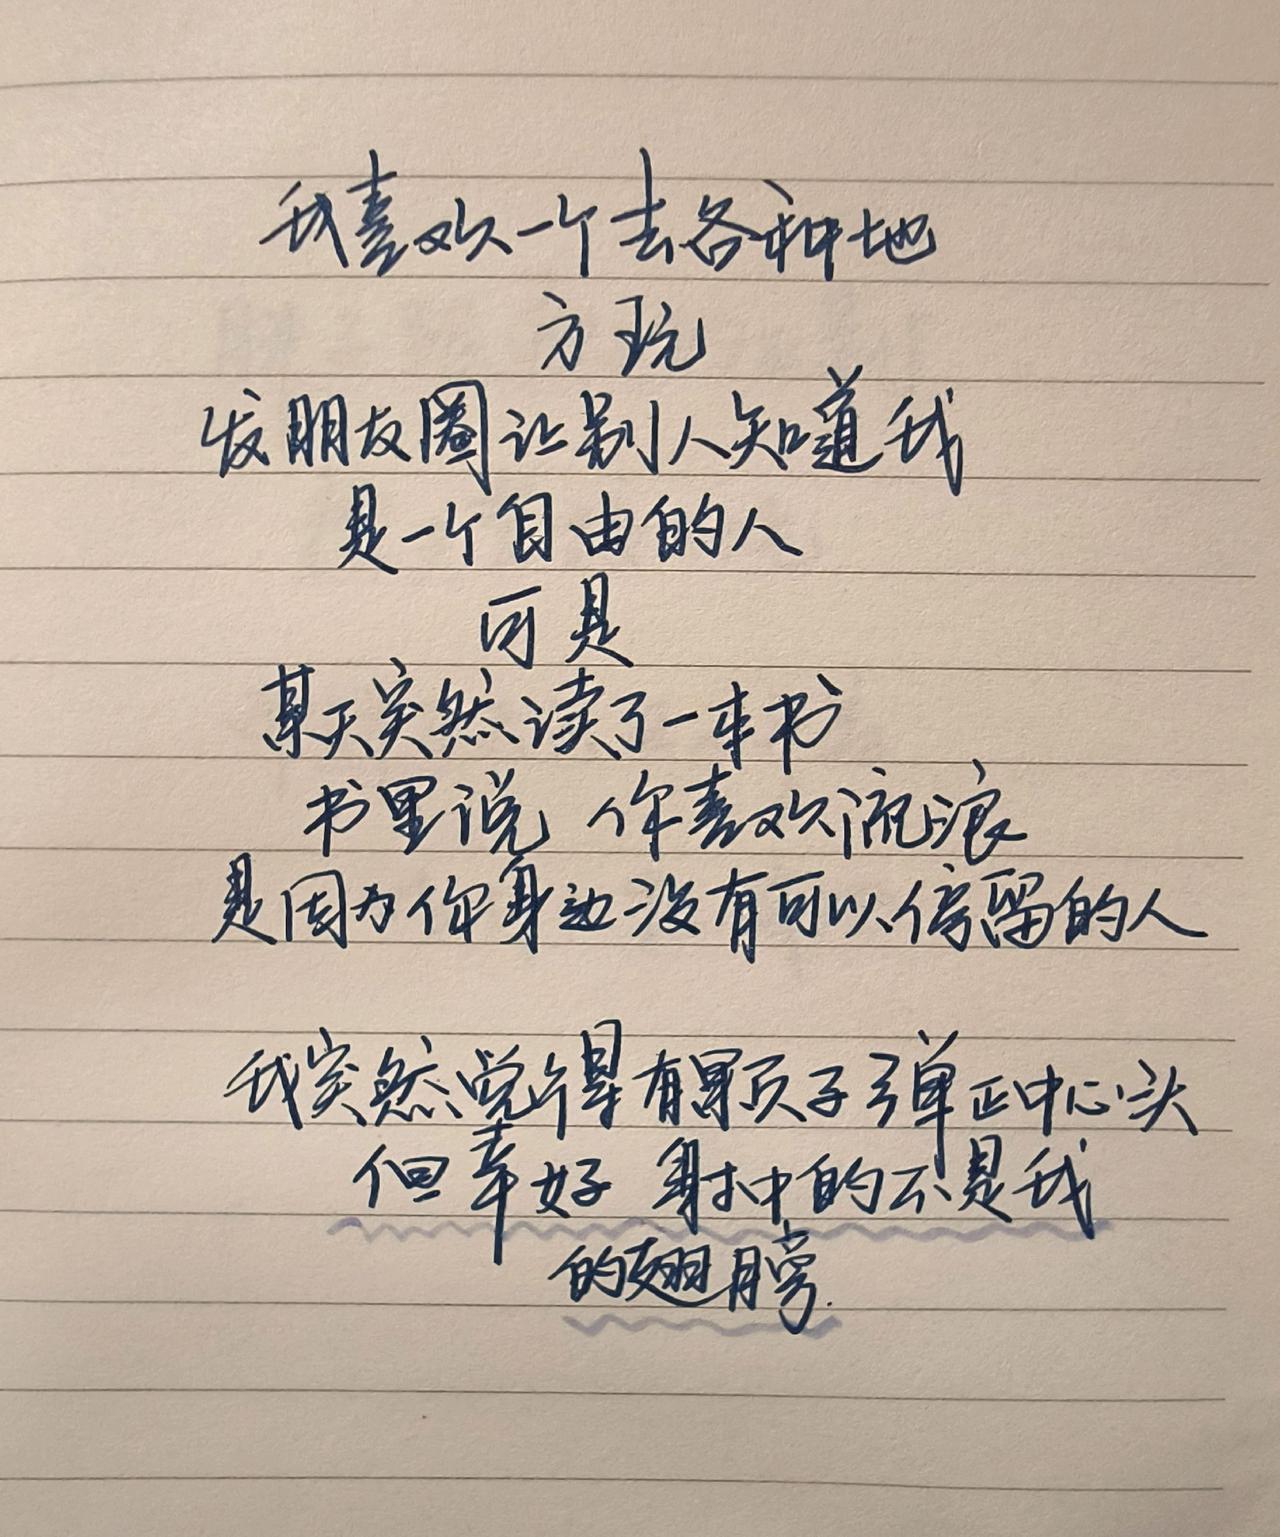 我喜欢一个去各种地
方玩
发朋友圈让别人知道我
是一个自由的人
可是
某天突然读了一本书
书里说 你喜欢流浪
是因为你身边没有可以停留的人
我突然觉得有颗子弹正中心头
但幸好 射中的不是我
的翅膀.